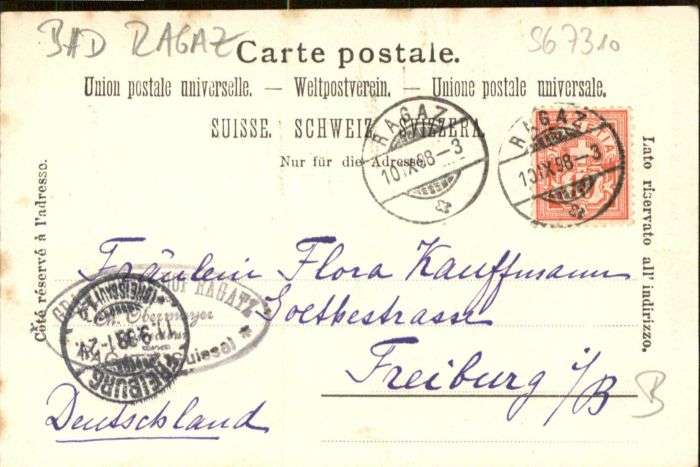 BAD RAGAZ
S67310
Carte postale.
Union postale universelle. — Weltpostverein. — Unione postale universale.
SUISSE. SCHWEIZ. SVIZZERA.
Nur für die Adresse.
RAGAZ
10.IX.98-3
RAGAZ
10.IX.98-3
Côté réservé à l'adresse.
Lato riservato all' indirizzo.
Fräulein Flora Kauffmann
Goethestrasse
Freiburg i/B
Deutschland
HOF RAGATZ
Obermeyer
(Suisse)
FREIBURG
(BREISGAU)
11.9.98.1-2
B